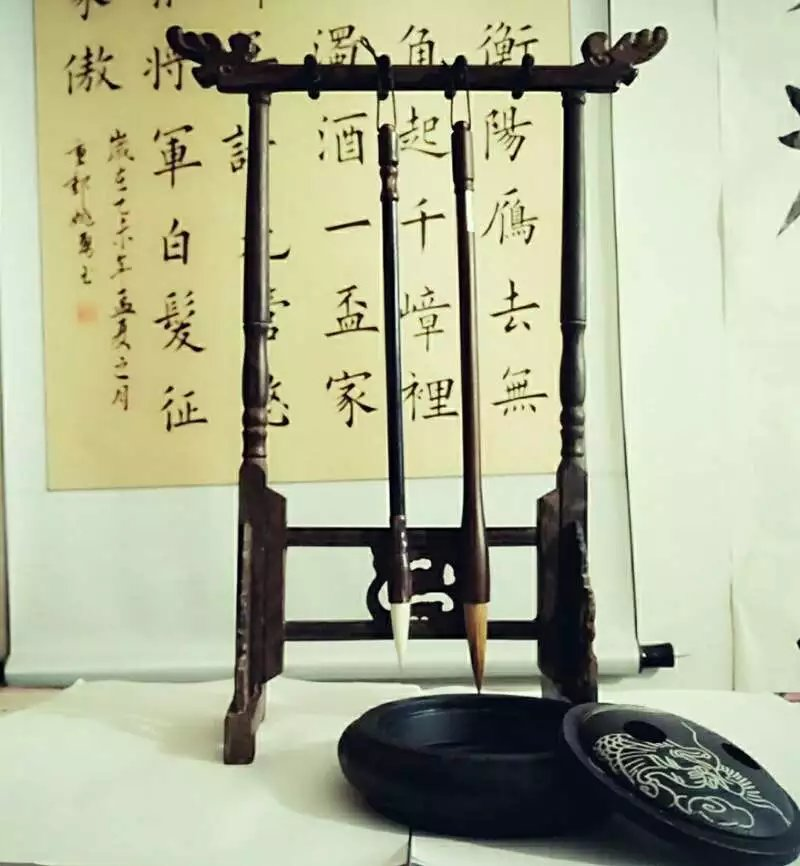 衡陽鴈去無
角起千嶂裡
濁酒一盃家
計羌管悠
將軍白髮征
傲
歲在乙未年孟夏之月